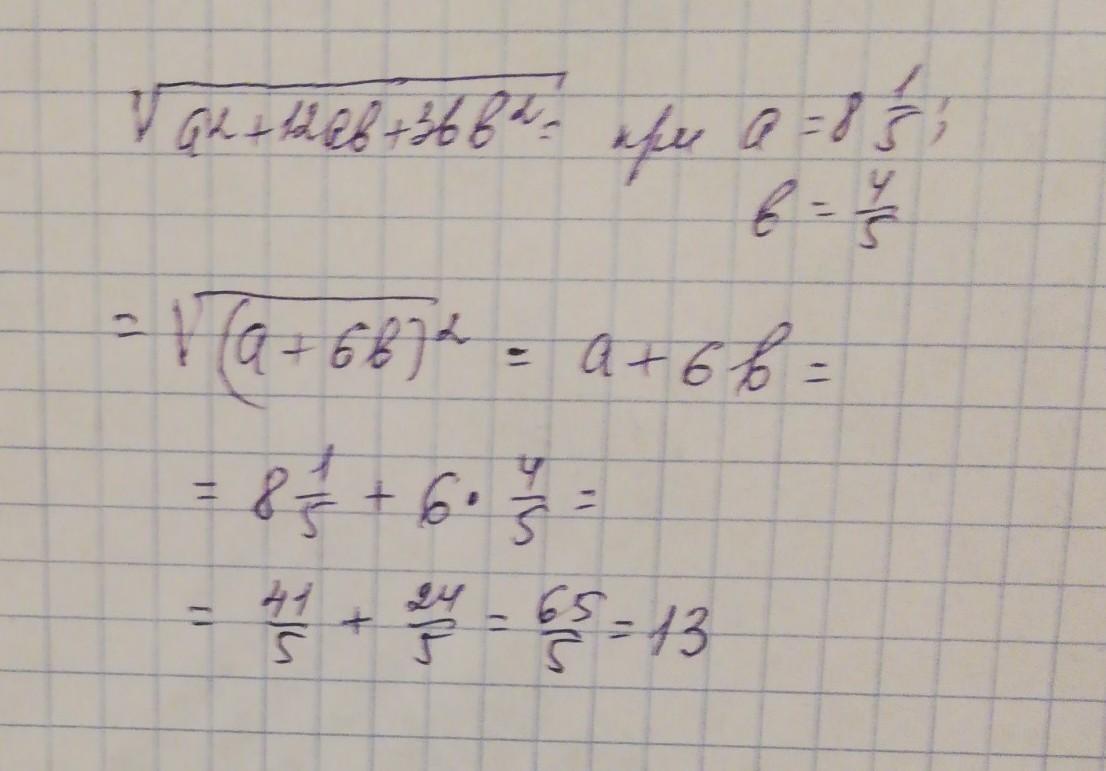 √(a²+12ab+36b²) = при a = 8 1/5;
b = 4/5
= √(a + 6b)² = a + 6b =
= 8 1/5 + 6 · 4/5 =
= 41/5 + 24/5 = 65/5 = 13